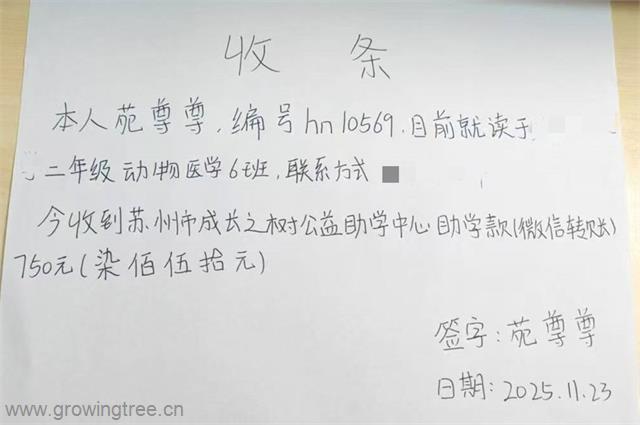 收 条
本人苑尊尊,编号hn10569.目前就读于
二年级 动物医学6班,联系方式
今收到苏州市成长之树公益助学中心助学款(微信转账)
750元(染佰伍拾元)
签字:苑尊尊
日期:2025.11.23
www.growingtree.cn